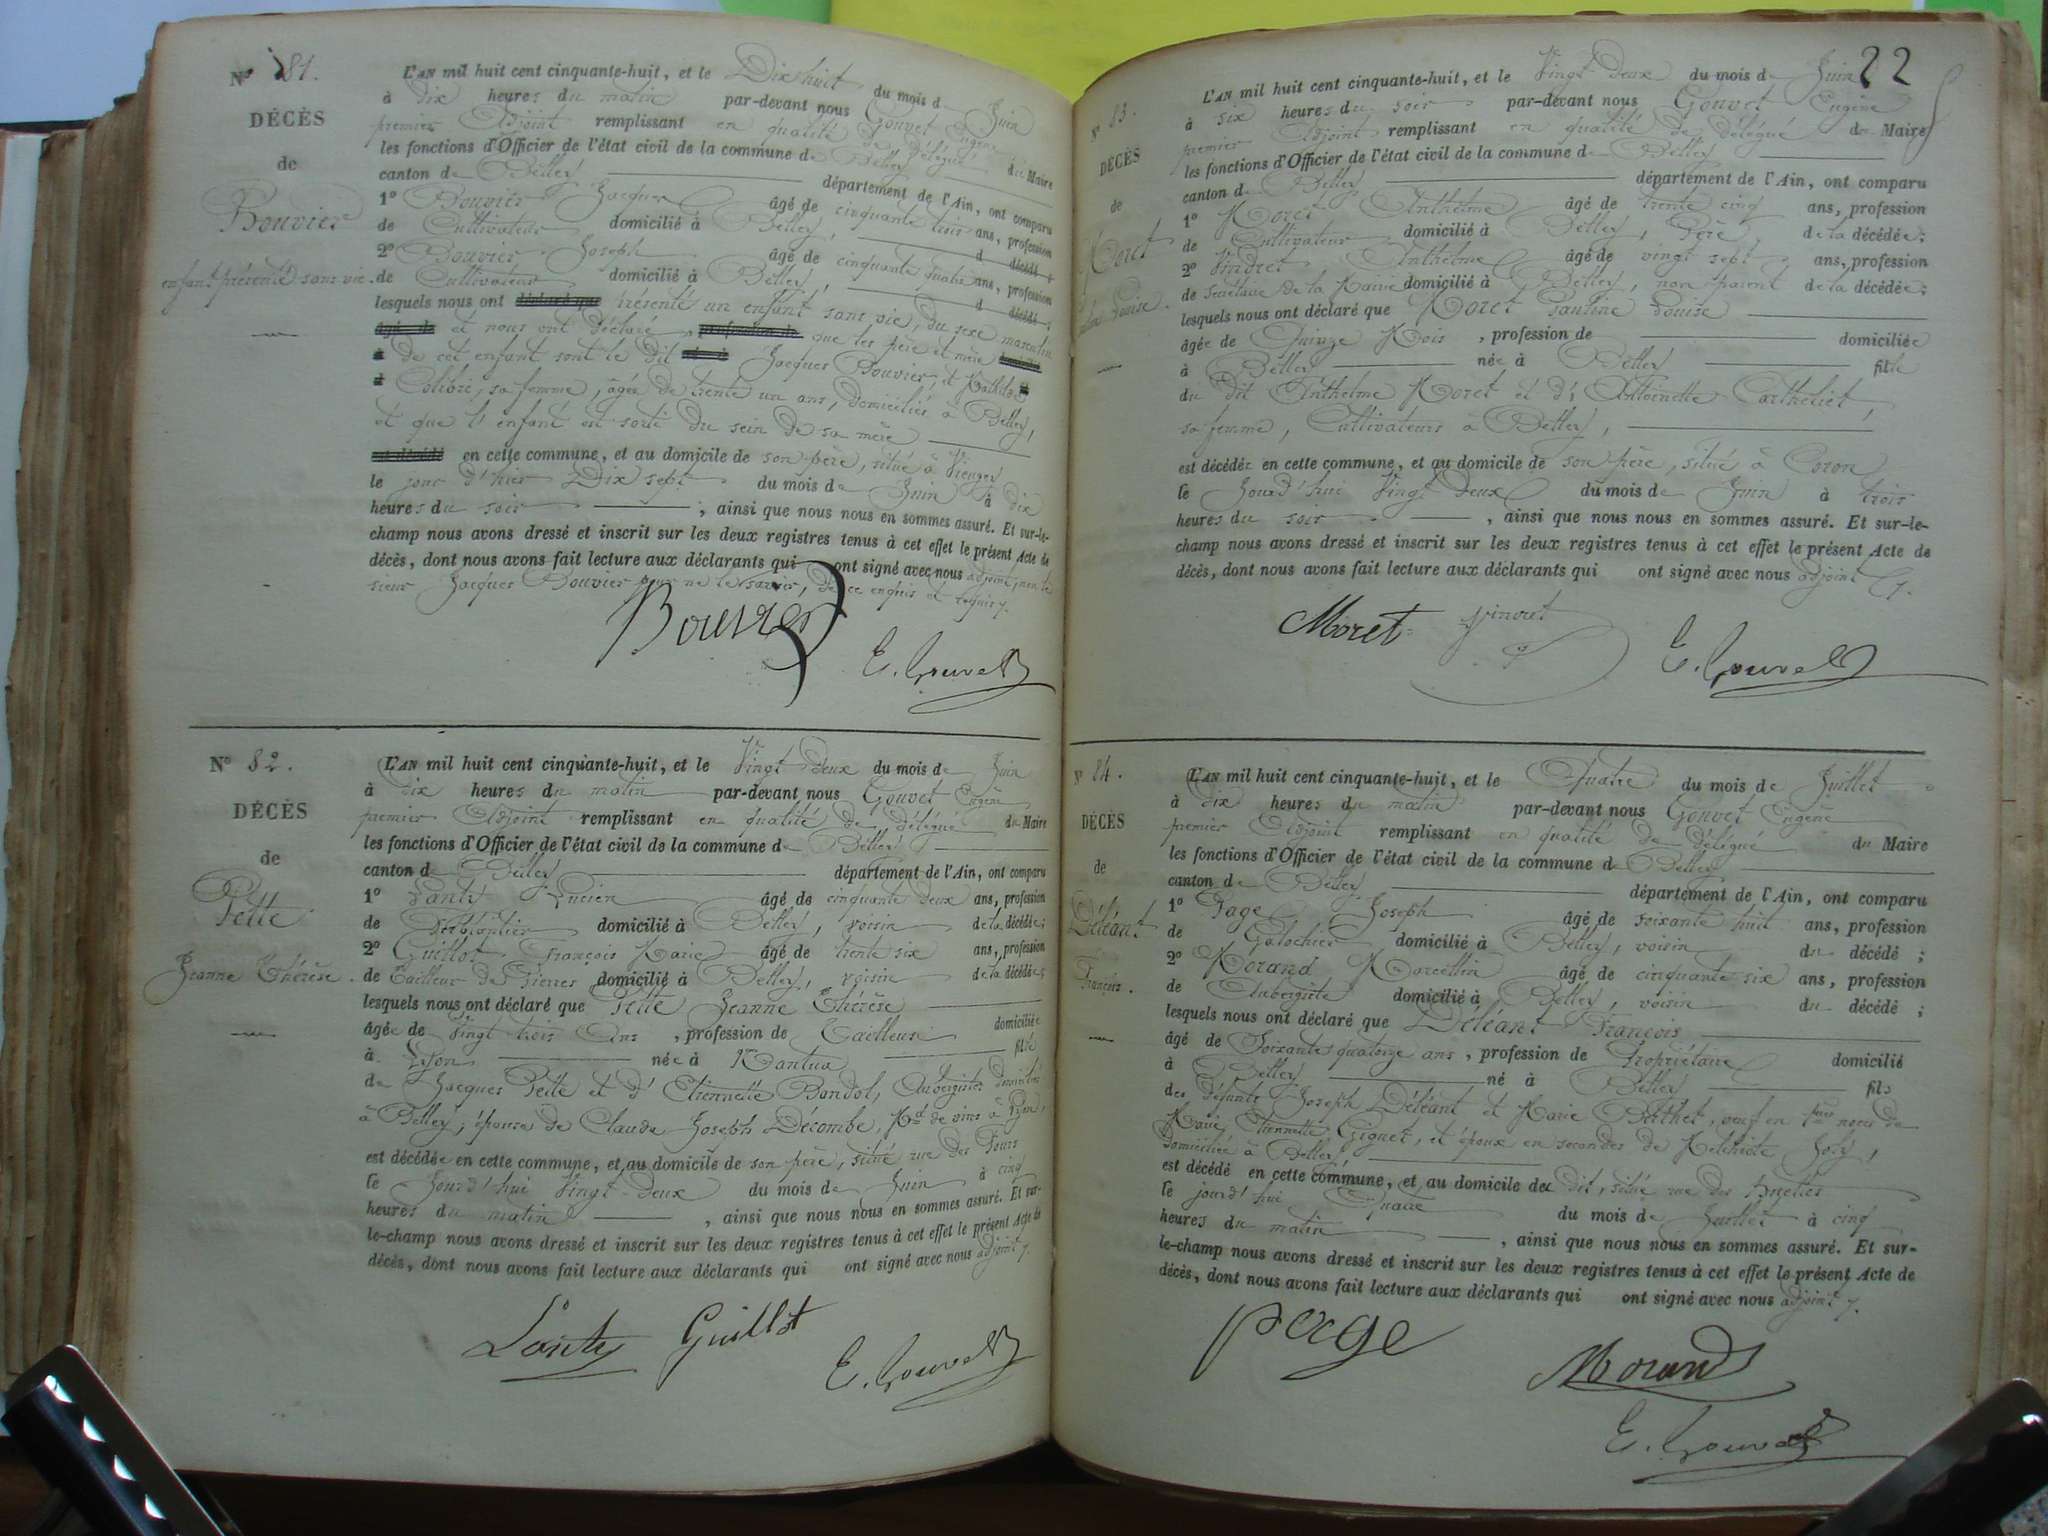 Nº 81.
DÉCÈS
de
Bouvier
enfant présenté sans vie.
L'AN mil huit cent cinquante-huit, et le Dix huit du mois de Juin
à dix heures du matin par-devant nous Gouvet Eugène
premier Adjoint remplissant en qualité de Délégué du Maire
les fonctions d'Officier de l'état civil de la commune de Belley
canton de Belley département de l'Ain, ont comparu
1º Bouvier Jacques âgé de cinquante trois ans, profession
de Cultivateur domicilié à Belley, d décédé ;
2º Bouvier Joseph âgé de cinquante quatre ans, profession
de Cultivateur domicilié à Belley, d décédé ;
lesquels nous ont présenté un enfant sans vie, du sexe masculin
et nous ont déclaré que les père et mère
de cet enfant sont le dit Jacques Bouvier, et Mathilde
Colibre, sa femme, âgée de trente un ans, domiciliés à Belley,
et que l'enfant est sorti du sein de sa mère
en cette commune, et au domicile de son père, situé à
le jour d'hier Dix sept du mois de Juin à dix
heures du soir ; ainsi que nous nous en sommes assuré. Et sur-le-
champ nous avons dressé et inscrit sur les deux registres tenus à cet effet le présent Acte de
décès, dont nous avons fait lecture aux déclarants qui ont signé avec nous adjoint, non le
sieur Jacques Bouvier pour ne le savoir, de ce enquis et requis /.
Bouvier
E. Gouvet
Nº 82.
DÉCÈS
de
Pette
Jeanne Thérèse.
L'AN mil huit cent cinquante-huit, et le Vingt deux du mois de Juin
à dix heures du matin par-devant nous Gouvet Eugène
premier Adjoint remplissant en qualité de délégué du Maire
les fonctions d'Officier de l'état civil de la commune de Belley
canton de Belley département de l'Ain, ont comparu
1º Lanty Lucien âgé de cinquante deux ans, profession
de domicilié à Belley, voisin de la décédée ;
2º Guillot François Marie âgé de trente six ans, profession
de Tailleur de Pierres domicilié à Belley, voisin de la décédée ;
lesquels nous ont déclaré que Pette Jeanne Thérèse
âgée de Vingt trois Ans, profession de Tailleuse domiciliée
à Lyon née à Nantua fille
de Jacques Pette et d'Etiennette Bandol, Aubergistes domiciliés
à Belley ; épouse de Claude Joseph Décombe, Md de vins à Lyon,
est décédée en cette commune, et au domicile de son père, situé rue des Fours
le Jourd'hui Vingt-deux du mois de Juin à cinq
heures du matin, ainsi que nous nous en sommes assuré. Et sur-
le-champ nous avons dressé et inscrit sur les deux registres tenus à cet effet le présent Acte de
décès, dont nous avons fait lecture aux déclarants qui ont signé avec nous adjoint /.
Lanty Guillot
E. Gouvet
22
Nº 83.
DÉCÈS
de
Moret
Louise.
L'AN mil huit cent cinquante-huit, et le Vingt deux du mois de Juin
à six heures du soir par-devant nous Gouvet Eugène
premier Adjoint remplissant en qualité de délégué du Maire
les fonctions d'Officier de l'état civil de la commune de Belley
canton de Belley département de l'Ain, ont comparu
1º Moret Anthelme âgé de trente cinq ans, profession
de Cultivateur domicilié à Belley, Père de la décédée ;
2º Vindret Anthelme âgé de vingt sept ans, profession
de Secrétaire de la Mairie domicilié à Belley, non parent de la décédée ;
lesquels nous ont déclaré que Moret Pauline Louise
âgée de Quinze Mois, profession de domiciliée
à Belley née à Belley fille
du dit Anthelme Moret et d'Antoinette Cartheliet,
sa femme, Cultivateurs à Belley,
est décédée en cette commune, et au domicile de son père, situé à Coron
le Jourd'hui Vingt Deux du mois de Juin à trois
heures du soir, ainsi que nous nous en sommes assuré. Et sur-le-
champ nous avons dressé et inscrit sur les deux registres tenus à cet effet le présent Acte de
décès, dont nous avons fait lecture aux déclarants qui ont signé avec nous adjoint /.
Moret Vindret
E. Gouvet
Nº 84.
DÉCÈS
de
Déléant
François.
L'AN mil huit cent cinquante-huit, et le Quatre du mois de Juillet
à Dix heures du matin par-devant nous Gouvet Eugène
premier Adjoint remplissant en qualité de délégué du Maire
les fonctions d'Officier de l'état civil de la commune de Belley
canton de Belley département de l'Ain, ont comparu
1º Page Joseph âgé de soixante huit ans, profession
de Galochier domicilié à Belley, voisin du décédé ;
2º Morand Marcellin âgé de cinquante six ans, profession
de Aubergiste domicilié à Belley, voisin du décédé ;
lesquels nous ont déclaré que Déléant François
âgé de Soixante quatorze ans, profession de Propriétaire domicilié
à Belley né à Belley fils
des défunts Joseph Déléant et Marie Berthet, veuf en 1ères noces de
Marie Etiennette Giguet, et époux en secondes de Melchiote Joly,
domiciliée à Belley,
est décédé en cette commune, et au domicile du dit, situé rue des
le jourd'hui Quatre du mois de Juillet à cinq
heures du matin, ainsi que nous nous en sommes assuré. Et sur-
le-champ nous avons dressé et inscrit sur les deux registres tenus à cet effet le présent Acte de
décès, dont nous avons fait lecture aux déclarants qui ont signé avec nous adjoint /.
page
Morand
E. Gouvet